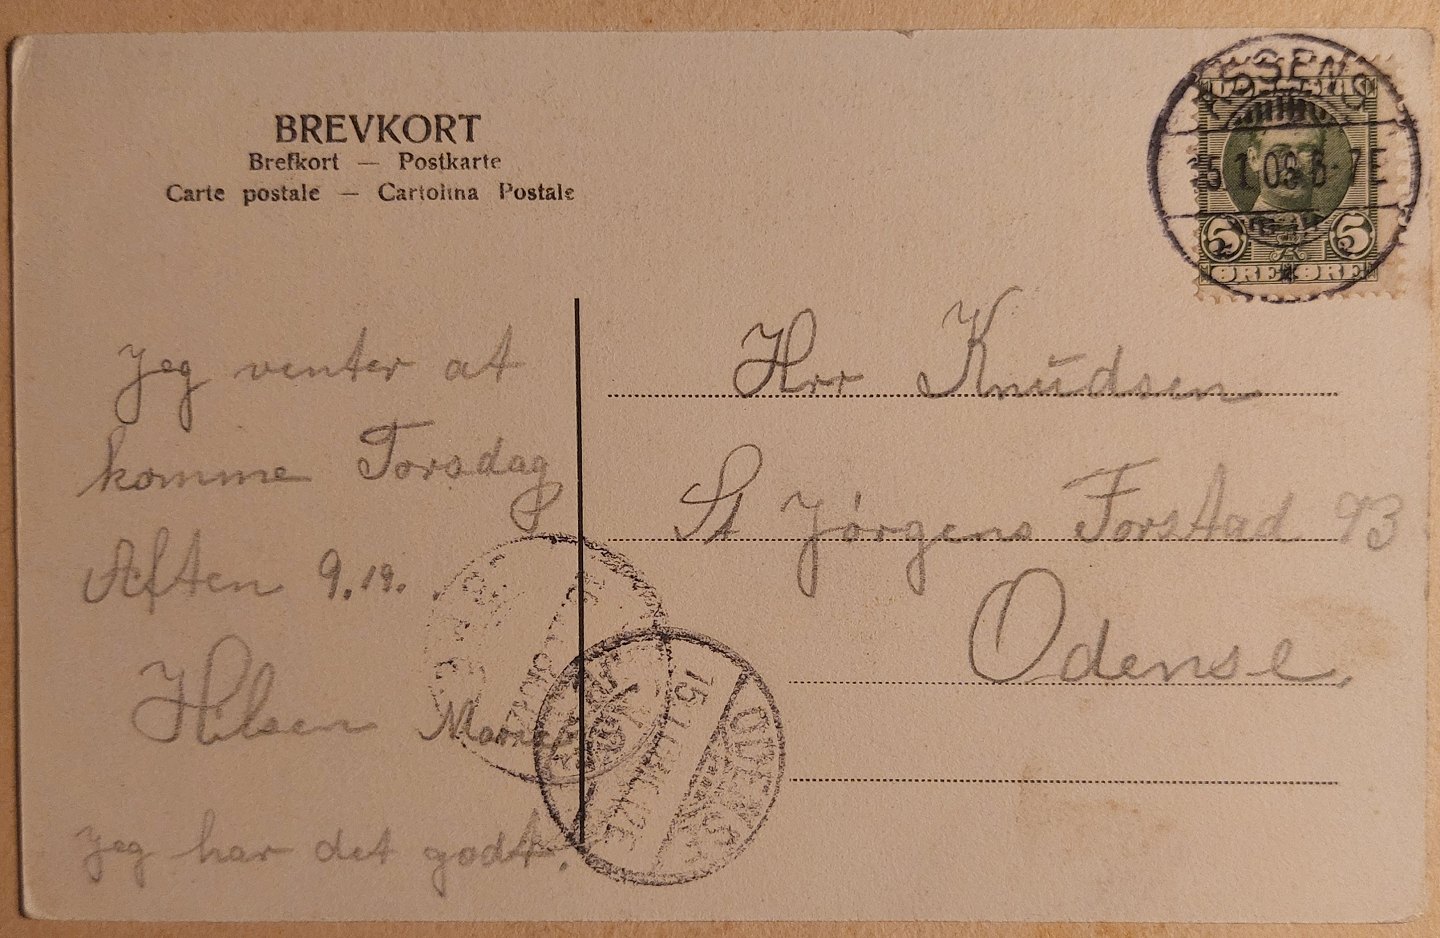 BREVKORT
Brefkort — Postkarte
Carte postale — Cartolina Postale
ASSENS
15.1.08 6-7E
5 5
ØRE ØRE
Jeg venter at
komme Torsdag
Aften 9.19.
Hilsen Marie
Jeg har det godt.
Hrr Knudsen
St Jørgens Forstad 93
Odense.
ODENSE
15.1